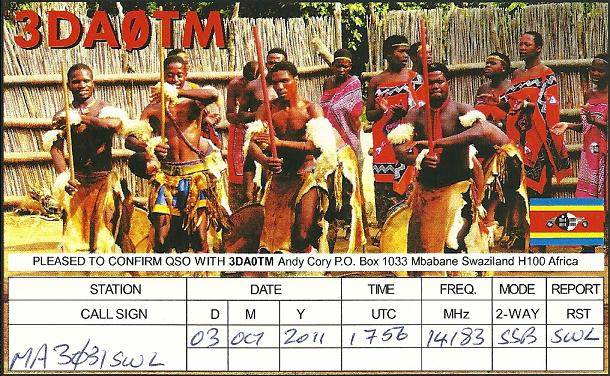 3DAØTM
PLEASED TO CONFIRM QSO WITH 3DA0TM Andy Cory P.O. Box 1033 Mbabane Swaziland H100 Africa
STATION DATE TIME FREQ. MODE REPORT
CALL SIGN D M Y UTC MHz 2-WAY RST
03 OCT 2011 1756 14183 SSB SWL
MA3Ø31SWL